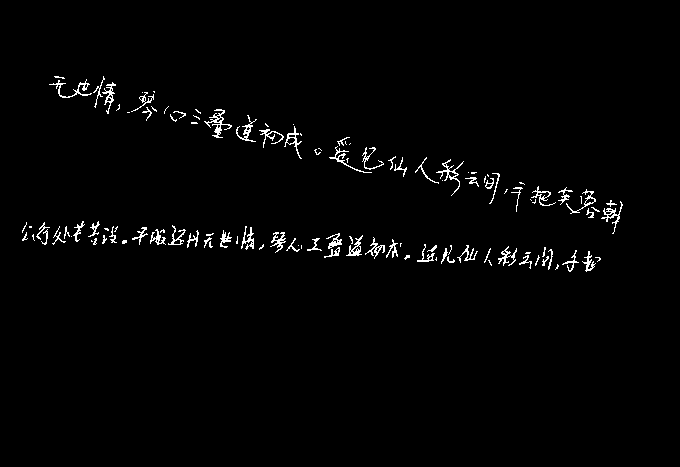 无世情,琴心三叠道初成。遥见仙人彩云间,手把芙蓉朝
公行处苍苔没。早服还丹无世情,琴心三叠道初成。遥见仙人彩云间,手把